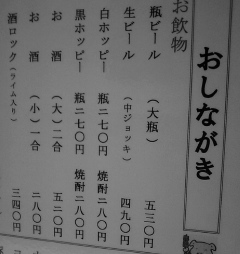 おしながき
お飲物
瓶ビール （大瓶） 五三〇円
生ビール （中ジョッキ） 四九〇円
白ホッピー 瓶二七〇円 焼酎二八〇円
黒ホッピー 瓶二七〇円 焼酎二八〇円
お酒 （大）二合 五二〇円
お酒 （小）一合 二八〇円
酒ロック（ライム入り） 三四〇円